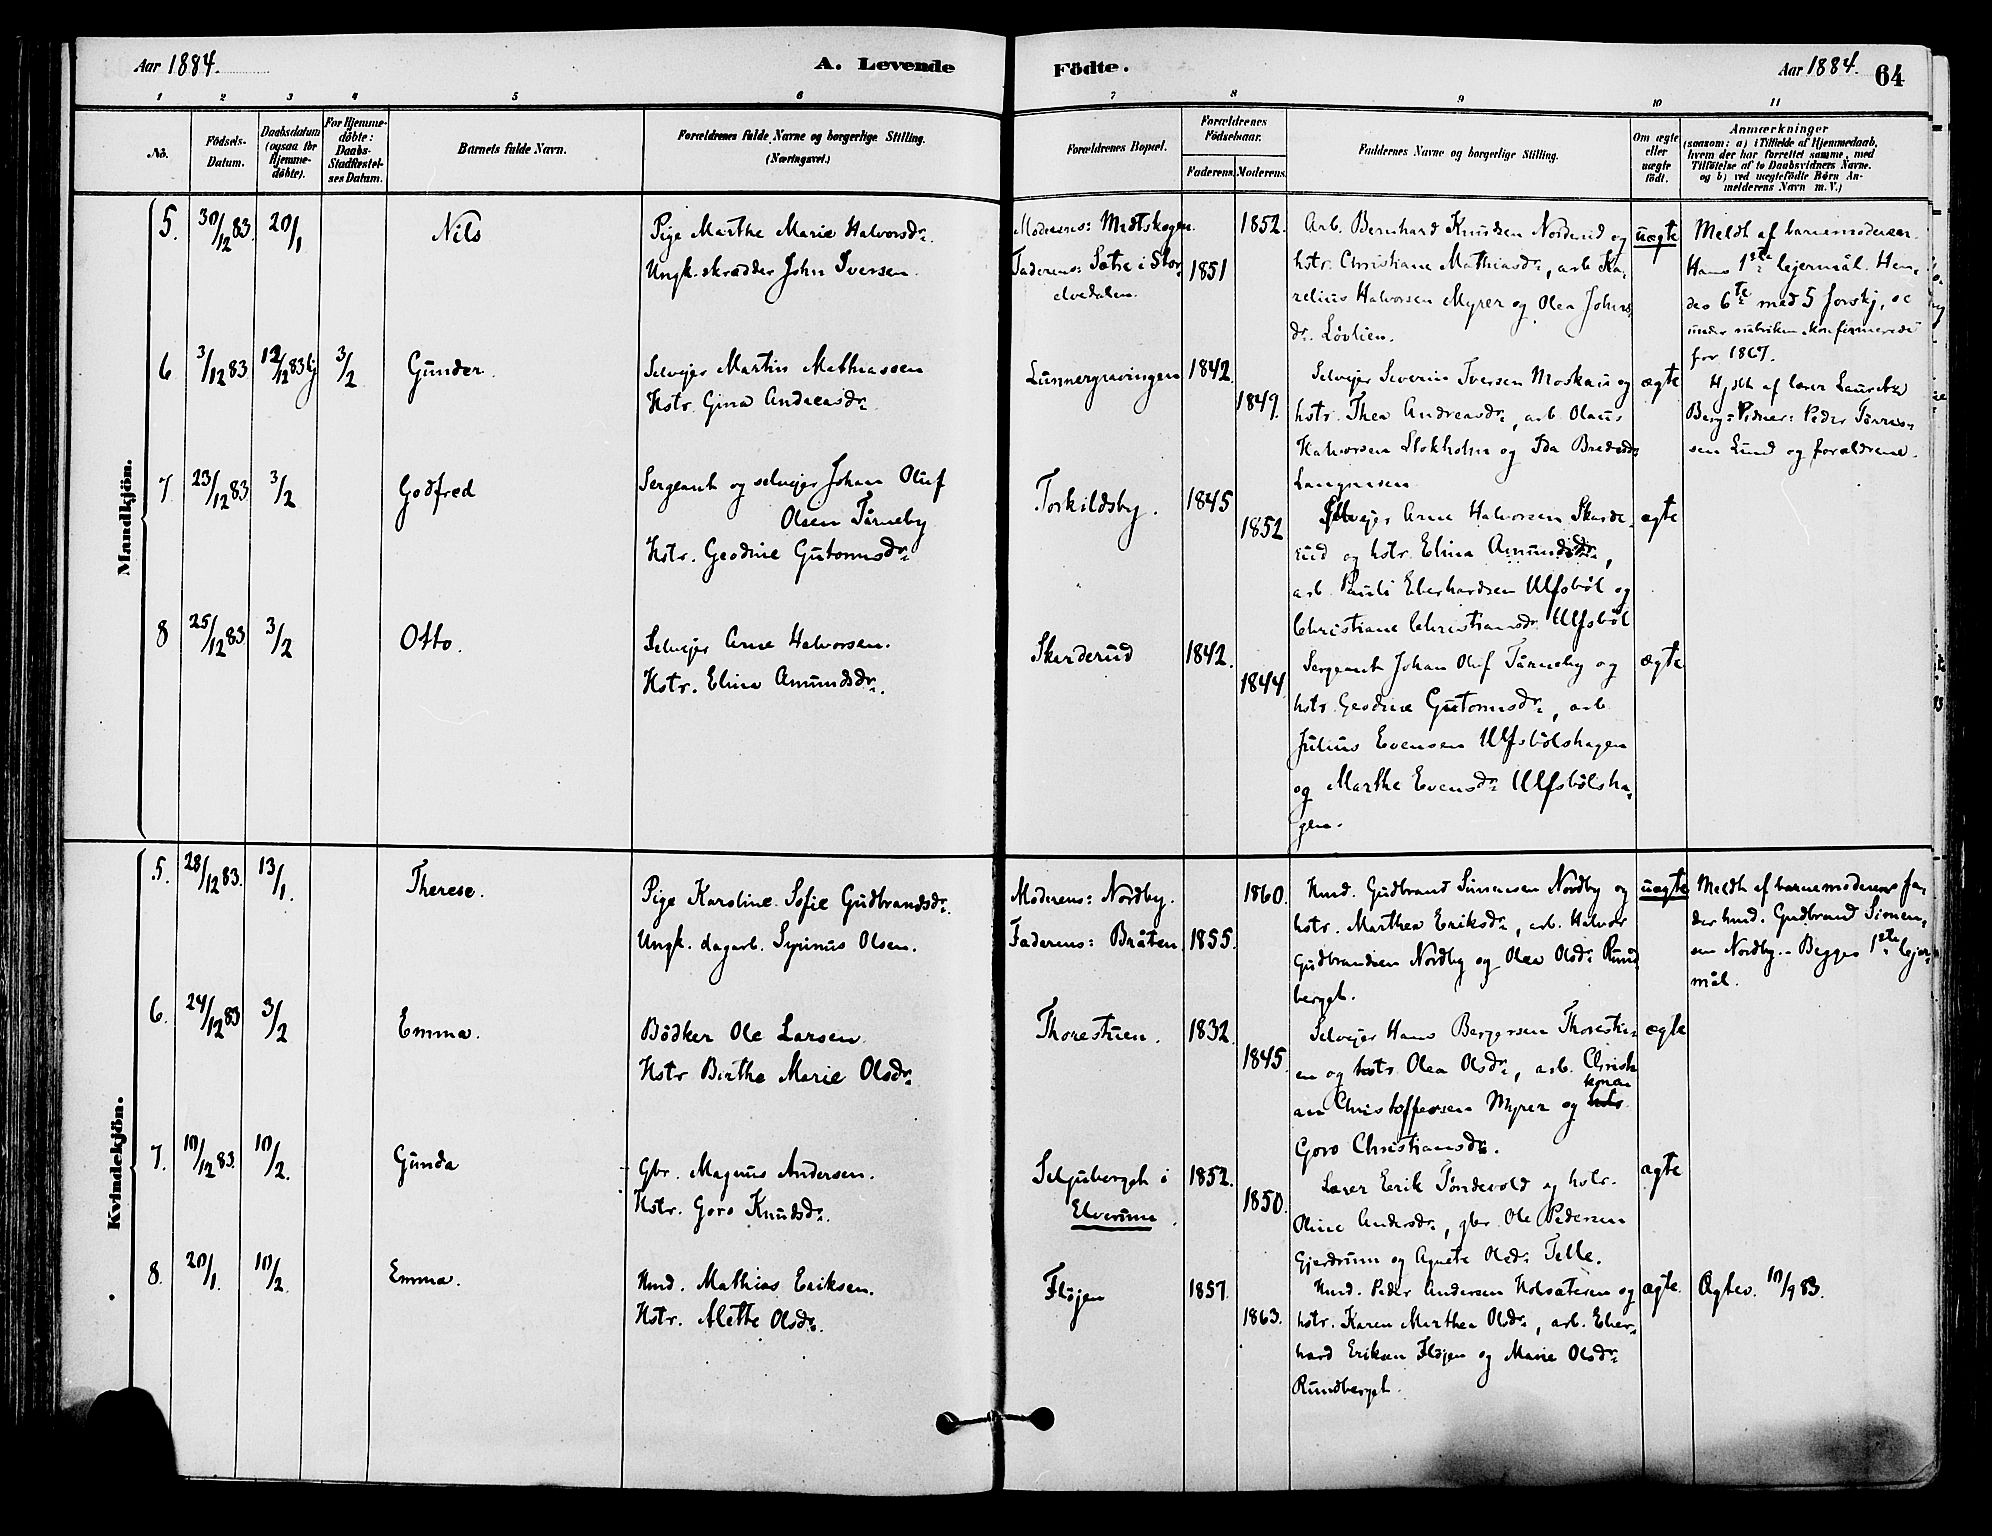 Aar 1884.
A. Levende
Födte.
Aar 1884.
64
1 2 3 4 5 6 7 8 9 10 11
No.
Födsels-Datum.
Daabsdatum (ogsaa for Hjemme-döbte).
For Hjemme-döbte: Daabs-Stadfæstel-ses Datum.
Barnets fulde Navn.
Forældrenes fulde Navne og borgerlige Stilling.
(Næringsvei.)
Forældrenes Bopæl.
Forældrenes Födselsaar.
Faderens. Moderens.
Faddernes Navne og borgerlige Stilling.
Om ægte eller uægte født.
Anmærkninger
(saasom: a) i Tilfælde af Hjemmedaab,
hvem der har forrettet samme, med
Tilföielse af to Daabsvidners Navne.
og b) ved uægtefödte Börn An-
melderens Navn m. V.)
Mandkjön.
5. 30/12 83. 20/1 Nils
Pige Marthe Marie Halvorsdr.
Ungk. skrædder John Iversen.
Moderens: Midtskogen.
Faderens: Sætre i Stor-
elvedalen.
1852.
1851
Arb. Bernhard Knudsen Norderud og
hstr. Christiane Mathiasdr, arb. Ka-
relius Halvorsen Myrer og Olea Johns-
dr. Løvlien.
uægte
Meldt af barnemoderen.
Hans 1ste lejermål. Hen-
des 6te med 5 forskj., se
under rubriken konfirmerede
for 1867.
6 3/12 83 12/12 83 hj 3/2 Gunder.
Selvejer Martin Mathiassen
Hstr. Gina Andreasdr.
Lunnergravingen
1842.
1849.
Selvejer Severin Iversen Moskau og
hstr. Thea Andreasdr, arb. Olaus
Halvorsen Stokholm og Ida
ægte
Hjdbt af lærer Lauritz
Berg: Vidner: Peder Tørres-
sen Lund og forældrene.
7. 23/12 83 3/2 Godfred
Sergeant og selvejer Johan Oluf
Olsen Tørneby
Hstr. Geodine Gutormsdr
Torkildsby.
1845
1852
Selvejer Arne Halvorsen Skarde-
rud og hstr. Elina Amundsdr,
arb. Pauli Eberhardsen Ulfsböl og
Christiane Christiansdr Ulfsböl
ægte
8 25/12 83. 3/2 Otto.
Selvejer Arne Halvorsen.
Hstr. Elina Amundsdr.
Skarderud
1842.
1844.
Sergeant Johan Oluf Tørneby og
hstr. Geodine Gutormsdr, arb.
Julius Evensen Ulfsbölshagen
og Marthe Evensdr Ulfsbölsha-
gen.
ægte
Kvindekjön.
5. 28/12 83. 13/1. Therese.
Pige Karoline Sofie Gudbrandsdr.
Ungk. dagarb. Syrinus Olsen.
Moderens: Nordby.
Faderens: Bråten
1860.
1855.
Hmd. Gudbrand Simensen Nordby og
hstr. Marthea Eriksdr, arb. Halvor
Gudbrandsen Nordby og Olea Olsdr Rund-
berget.
uægte
Meldt af barnemoderens fa-
der hmd. Gudbrand Simen-
sen Nordby.. Begges 1ste lejer-
mål.
6. 24/12 83 3/2 Emma.
Bödker Ole Larsen.
Hstr Birthe Marie Olsdr
Thorestuen.
1832.
1845.
Selvejer Hans Bergersen Thorestu-
en og hstr. Olea Olsdr, arb. Christi-
an Christoffersen Myrer og kona
Goro Christiansdr.
ægte
7. 10/12 83. 10/2. Gunda
Gbr. Magnus Andersen.
Hstr. Goro Knudsdr.
Seljuberget i
Elverum.
1852.
1850.
Lærer Eerik Tøndevold og hstr.
Oline Andersdr, gbr. Ole Pedersen
Gjerdrum og Agnete Olsdr Telle.
ægte
8. 20/1. 10/2. Emma.
Hmd. Mathias Eriksen.
Hstr. Alette Olsdr.
Fløjen
1857.
1863.
Hmd. Peder Andersen Holsæteren og
hstr. Karen Marthea Olsdr, arb. Eber-
hard Eriksen Fløjen og Marie Olsdr
Rundberget.
ægte.
Ægtev. 10/9 83.